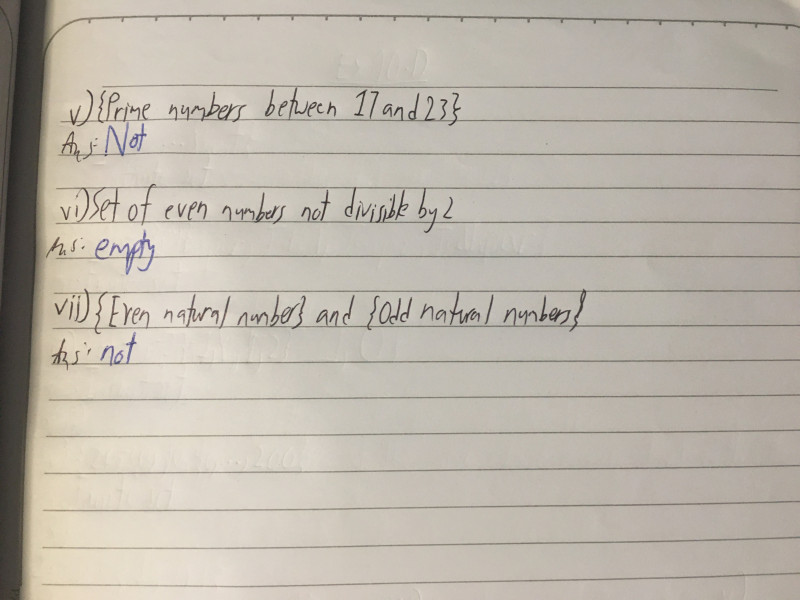 v) {Prime numbers between 17 and 23}
Ans: Not
vi) Set of even numbers not divisible by 2
Ans: empty
vii) {Even natural number} and {Odd natural numbers}
Ans: not